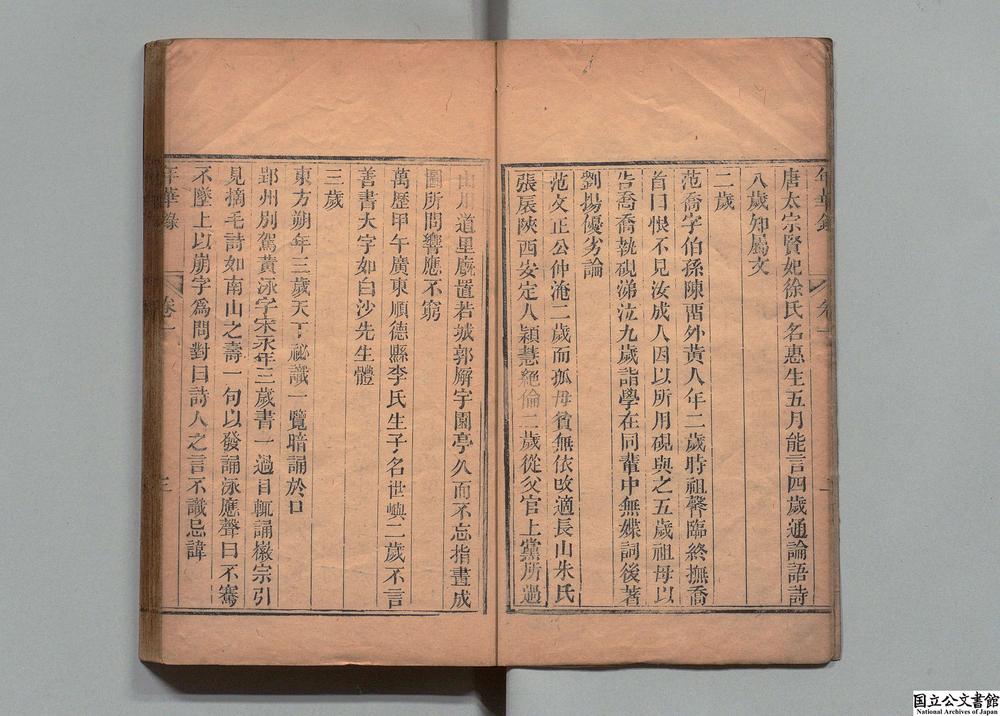 年華錄 卷一
唐太宗賢妃徐氏名惠生五月能言四歲通論語詩
八歲知屬文
二歲
范喬字伯孫陳畱外黃人年二歲時祖馨臨終撫喬
首曰恨不見汝成人因以所用硯與之五歲祖母以
告喬喬執硯涕泣九歲詣學在同輩中無媟詞後著
劉揚優劣論
范文正公仲淹二歲而孤母貧無依改適長山朱氏
張扆陝西安定人穎慧絕倫二歲從父官上黨所過
山川道里廨置若城郭廨宇園亭久而不忘指畫成
圖所問響應不窮
萬歷甲午廣東順德縣李氏生子名世嶼二歲不言
善書大字如白沙先生體
三歲
東方朔年三歲天下祕讖一覽暗誦於口
郢州別駕黃泳字宋永年三歲書一過目輒誦徽宗引
見摘毛詩如南山之壽一句以發誦泳應聲曰不騫
不墜上以崩字爲問對曰詩人之言不識忌諱
年華錄 卷一 三
国立公文書館
National Archives of Japan